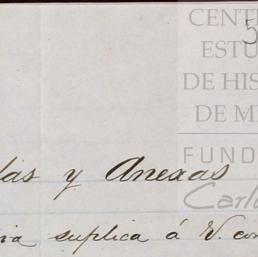 CENT
5
ESTU
DE HIS
DE M
FUND
Carlo
las y Anexas
ia suplica á V. con